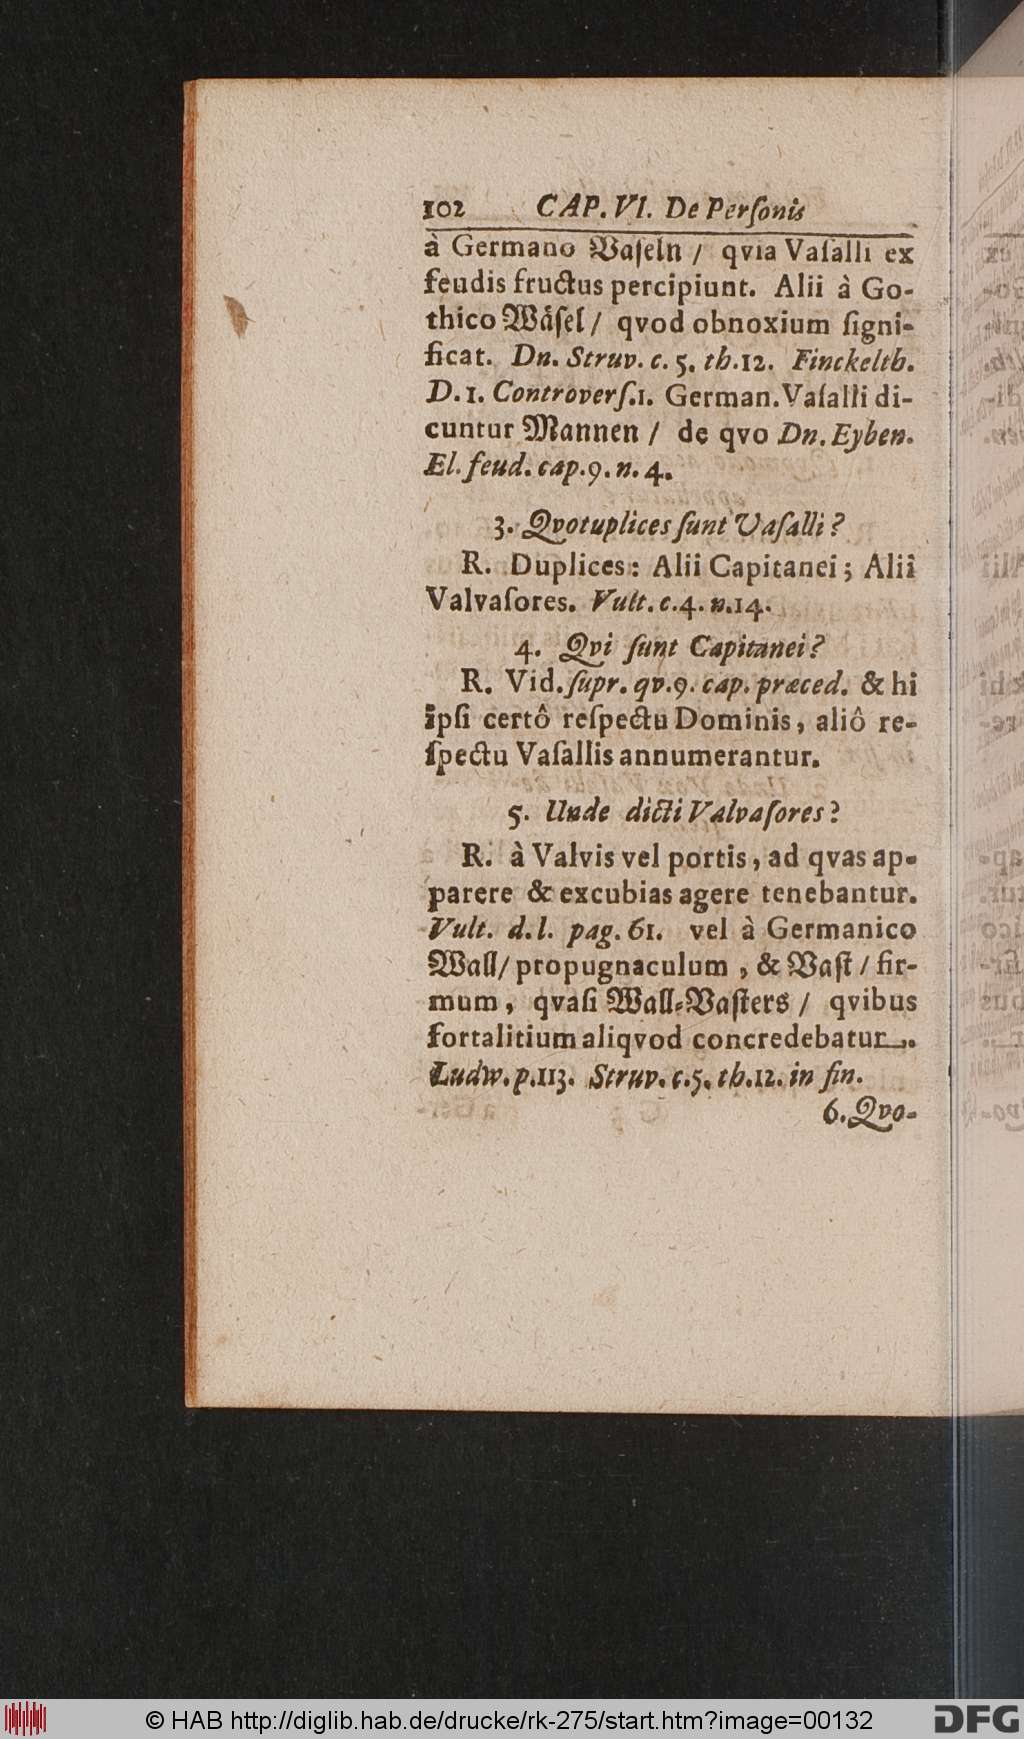 102 CAP. VI. De Perſonis
à Germano Vaſeln / qvia Vaſalli ex
feudis fructus percipiunt. Alii à Go-
thico Wåſel / qvod obnoxium ſigni-
ficat. Dn. Struv. c. 5. th. 12. Finckelth.
D. 1. Controverſ. 1. German. Vaſalli di-
cuntur Mannen / de qvo Dn. Eyben.
El. feud. cap. 9. n. 4.
3. Qvotuplices ſunt Vaſalli?
R. Duplices: Alii Capitanei; Alii
Valvaſores. Vult. c. 4. n. 14.
4. Qvi ſunt Capitanei?
R. Vid. ſupr. qv. 9. cap. præced. & hi
ipſi certô reſpectu Dominis, aliô re-
ſpectu Vaſallis annumerantur.
5. Unde dicti Valvaſores?
R. à Valvis vel portis, ad qvas ap-
parere & excubias agere tenebantur.
Vult. d. l. pag. 61. vel à Germanico
Wall / propugnaculum, & Vaſt / fir-
mum, qvaſi Wall-Vaſters / qvibus
fortalitium aliqvod concredebatur.
Ludw. p. 113. Struv. c. 5. th. 12. in fin.
6. Qvo-
© HAB http://diglib.hab.de/drucke/rk-275/start.htm?image=00132
DFG